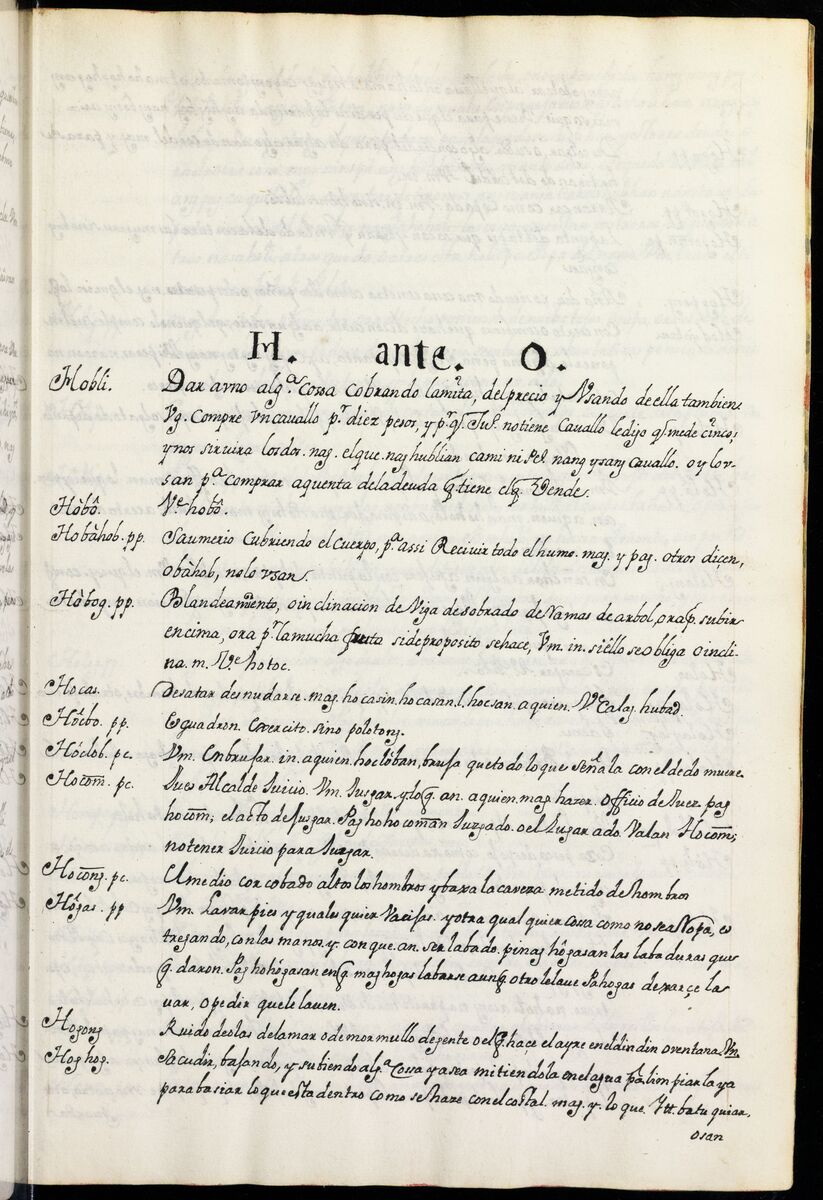 H. ante. O.
Hobli. Dar a vno algª. cossa cobrando la mitª, del precio y Vsando de ella tambien.
Vg. Compre Vn cavallo pr. diez pesos, y pr. q̃ Juº. no tiene Cavallo le dijo q̃ me de cinco;
y nos seruira los dos. nag. el que. nag hublian cami ni Pº. nang ysang Cavallo. o y lo v-
san pª. comprar a quenta de la deuda q̃ tiene el q̃ Vende.
Hòbô. Ve. hobô.
Hobàhob. pp. Saumerio Cubriendo el Cuerpo, pª. assi Recivir todo el humo. mag. y pag. otros diçen,
obàhob, no lo vsan.
Hòbog. pp. Blandeamiento, o inclinacion de Viga de sobrado de Ramas de arbol, ora pr. subir
encima, ora pr. la mucha fruta si de proposito se haçe, Vm. in. si ello se obliga o incli-
na. m. Ve. hotoc.
Hocas. Desatar desnudarse. mag. hocasin. hocasan. l. hocsan. a quien. Ve. Calag. hubad.
Hôcbo. pp. Esquadron. Exercito. sino poloton.
Hóclob. pc. Vm. Enbrujar. in. a quien. hoclòban, bruja que todo lo que señala con el dedo muere.
Hocom. pc. Jues Alcalde Juicio. Vm. Jusgar. y lo q̃. an. a quien. mag hazer. Officio de Juez. pag
hocom; el acto de jusgar. Pag hohocoman Juzgado. o el Lugar ado. Valan Hocom;
no tener Juicio para Juzgar.
Hocong. pc. Vmedio corcobado altos los hombros y baxa la caveza metido de hombros
Hôgas. pp Vm. Lavar pies y qualesquier Vacijas. y otra qualquier cossa como no sea Ropa, es
tregando, con las manos. y. con que. an. ser labado. pinag hôgasan las labaduras que
q̃. daron. Pag hohôgasan en q̃. mag hogas labarse aunq̃ otro le laue Pahogas dexarçe la
uar, o pedir que le lauen.
Hogong Ruido de olas de la mar o de mormullo de gente o el q̃. haçe el ayre en el dindin o ventana. Vm.
Hog hog. Sacudir, bajando, y subiendo algª. Cossa ya sea mitiendola en el agua pª. limpiarla ya
para basiar lo que esta dentro como se haze con el costal. mag. y. lo que. Ytt. batuquiar,
osan